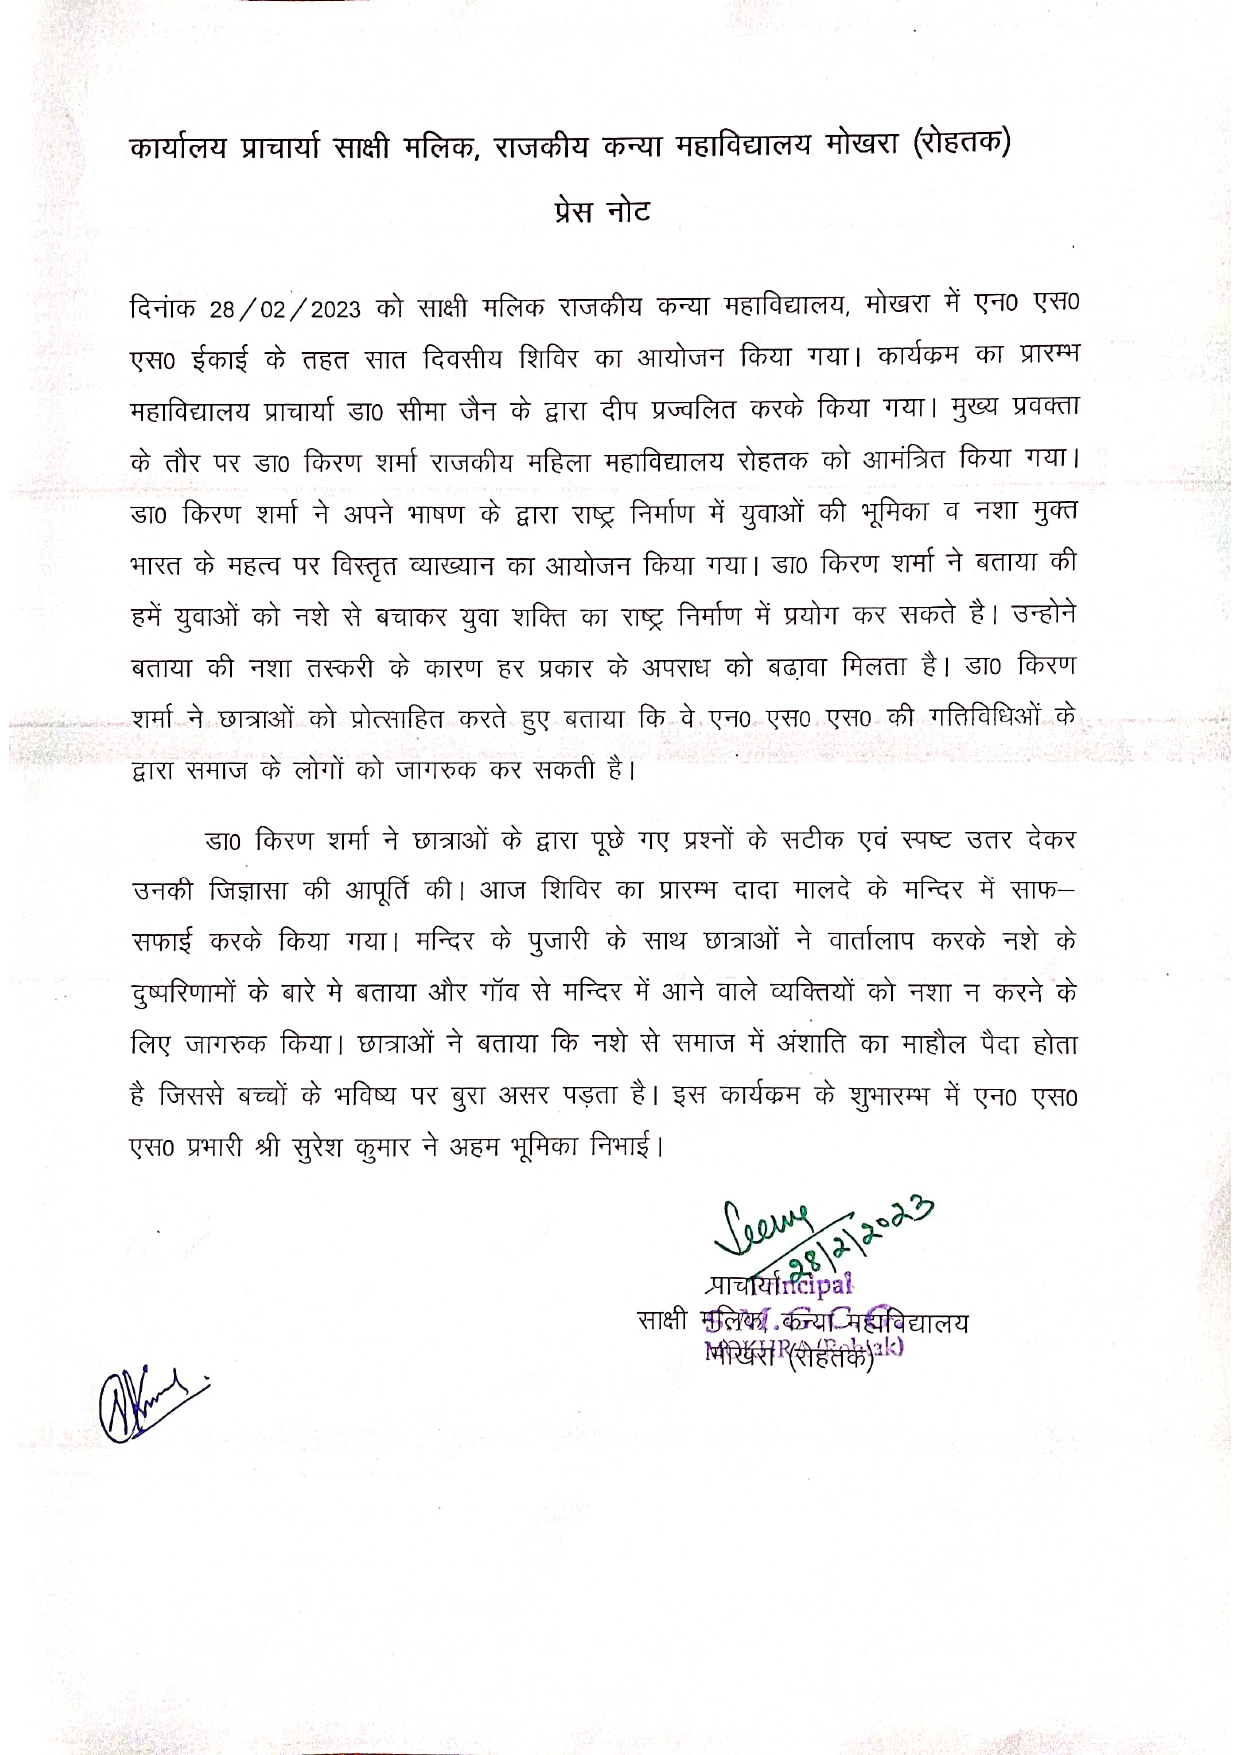 कार्यालय प्राचार्या साक्षी मलिक, राजकीय कन्या महाविद्यालय मोखरा (रोहतक)
प्रेस नोट
दिनांक 28/02/2023 को साक्षी मलिक राजकीय कन्या महाविद्यालय, मोखरा में एन0 एस0
एस0 ईकाई के तहत सात दिवसीय शिविर का आयोजन किया गया। कार्यक्रम का प्रारम्भ
महाविद्यालय प्राचार्या डा0 सीमा जैन के द्वारा दीप प्रज्वलित करके किया गया। मुख्य प्रवक्ता
के तौर पर डा0 किरण शर्मा राजकीय महिला महाविद्यालय रोहतक को आमंत्रित किया गया।
डा0 किरण शर्मा ने अपने भाषण के द्वारा राष्ट्र निर्माण में युवाओं की भूमिका व नशा मुक्त
भारत के महत्व पर विस्तृत व्याख्यान का आयोजन किया गया। डा0 किरण शर्मा ने बताया की
हमें युवाओं को नशे से बचाकर युवा शक्ति का राष्ट्र निर्माण में प्रयोग कर सकते है। उन्होने
बताया की नशा तस्करी के कारण हर प्रकार के अपराध को बढ़ावा मिलता है। डा0 किरण
शर्मा ने छात्राओं को प्रोत्साहित करते हुए बताया कि वे एन0 एस0 एस0 की गतिविधिओं के
द्वारा समाज के लोगों को जागरुक कर सकती है।
डा0 किरण शर्मा ने छात्राओं के द्वारा पूछे गए प्रश्नों के सटीक एवं स्पष्ट उतर देकर
उनकी जिज्ञासा की आपूर्ति की। आज शिविर का प्रारम्भ दादा मालदे के मन्दिर में साफ–
सफाई करके किया गया। मन्दिर के पुजारी के साथ छात्राओं ने वार्तालाप करके नशे के
दुष्परिणामों के बारे मे बताया और गॉव से मन्दिर में आने वाले व्यक्तियों को नशा न करने के
लिए जागरुक किया। छात्राओं ने बताया कि नशे से समाज में अंशाति का माहौल पैदा होता
है जिससे बच्चों के भविष्य पर बुरा असर पड़ता है। इस कार्यक्रम के शुभारम्भ में एन0 एस0
एस0 प्रभारी श्री सुरेश कुमार ने अहम भूमिका निभाई।
28/2/2023
प्राचार्या
साक्षी मलिक, कन्या महाविद्यालय
मोखरा (रोहतक)